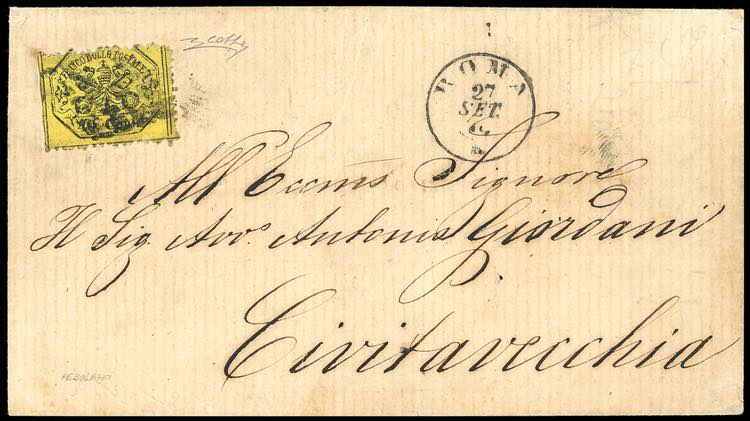 FRANCO BOLLO POSTALE
ROMA
27
SET.
All' Eccmo Signore
Il Sig. Avvo. Antonio Giordani
Civitavecchia